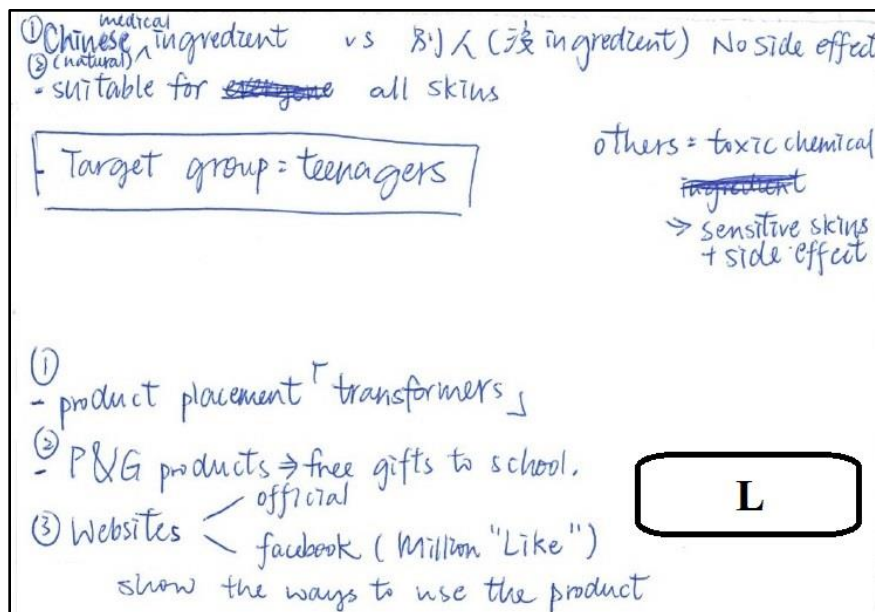 ① Chinese medical ingredient vs 別人 (沒 ingredient) No side effect
② (natural)
- suitable for everyone all skins
- Target group = teenagers
others = toxic chemical
ingredient
⇒ sensitive skins
+ side effect
①
- product placement「transformers」
②
- P&G products ⇒ free gifts to school.
③ Websites < official
facebook (Million "Like")
show the ways to use the product
L